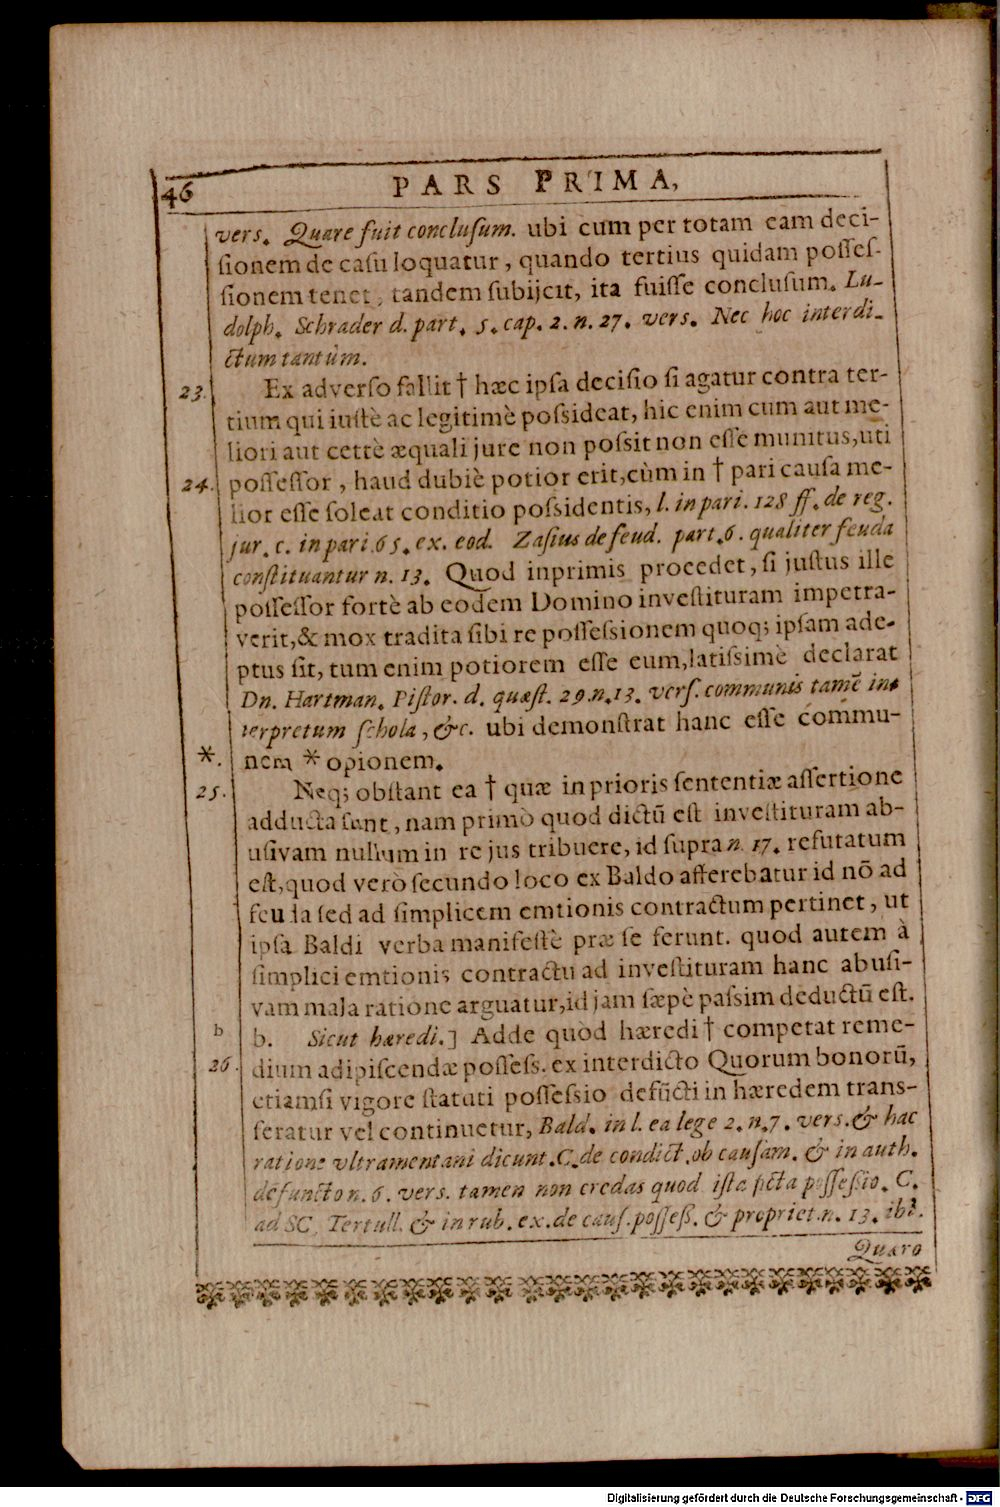 46
PARS PRIMA,
vers. Quare fuit conclusum. ubi cum per totam eam deci-
sionem de casu loquatur, quando tertius quidam posses-
sionem tenet, tandem subijcit, ita fuisse conclusum. Lu-
dolph. Schrader d. part. 5. cap. 2. n. 27. vers. Nec hoc interdi-
ctum tantùm.
23. Ex adverso fallit † hæc ipsa decisio si agatur contra ter-
tium qui iustè ac legitimè possideat, hic enim cum aut me-
liori aut certè æquali jure non possit non esse munitus, uti
24. possessor, haud dubiè potior erit, cùm in † pari causa me-
lior esse soleat conditio possidentis, l. in pari. 128 ff. de reg.
jur. c. in pari 65. ex. eod. Zasius de feud. part. 6. qualiter feuda
constituantur n. 13. Quod inprimis procedet, si justus ille
possessor fortè ab eodem Domino investituram impetra-
verit, & mox tradita sibi re possessionem quoq; ipsam ade-
ptus sit, tum enim potiorem esse eum, latissimè declarat
Dn. Hartman. Pistor. d. quæst. 29. n. 13. vers. communis tamē in-
terpretum schola, &c. ubi demonstrat hanc esse commu-
*. nem * opionem.
25. Neq; obstant ea † quæ in prioris sententiæ assertione
adducta sunt, nam primò quod dictū est investituram ab-
usivam nullum in re jus tribuere, id supra n. 17. refutatum
est, quod verò secundo loco ex Baldo afferebatur id nō ad
feuda sed ad simplicem emtionis contractum pertinet, ut
ipsa Baldi verba manifestè præ se ferunt. quod autem à
simplici emtionis contractu ad investituram hanc abusi-
vam mala ratione arguatur, id jam sæpè passim deductū est.
b b. Sicut hæredi.] Adde quòd hæredi † competat reme-
26. dium adipiscendæ possess. ex interdicto Quorum bonorū,
etiamsi vigore statuti possessio defūcti in hæredem trans-
feratur vel continuetur, Bald. in l. ea lege 2. n. 7. vers. & hac
ratione vltramentani dicunt. C. de condict. ob causam. & in auth.
defuncto n. 6. vers. tamen non credas quod ista pcta possessio. C.
ad SC. Tertull. & in rub. ex. de caus. posseß. & propriet. n. 13. ibi.
Quaro
Digitalisierung gefördert durch die Deutsche Forschungsgemeinschaft - DFG